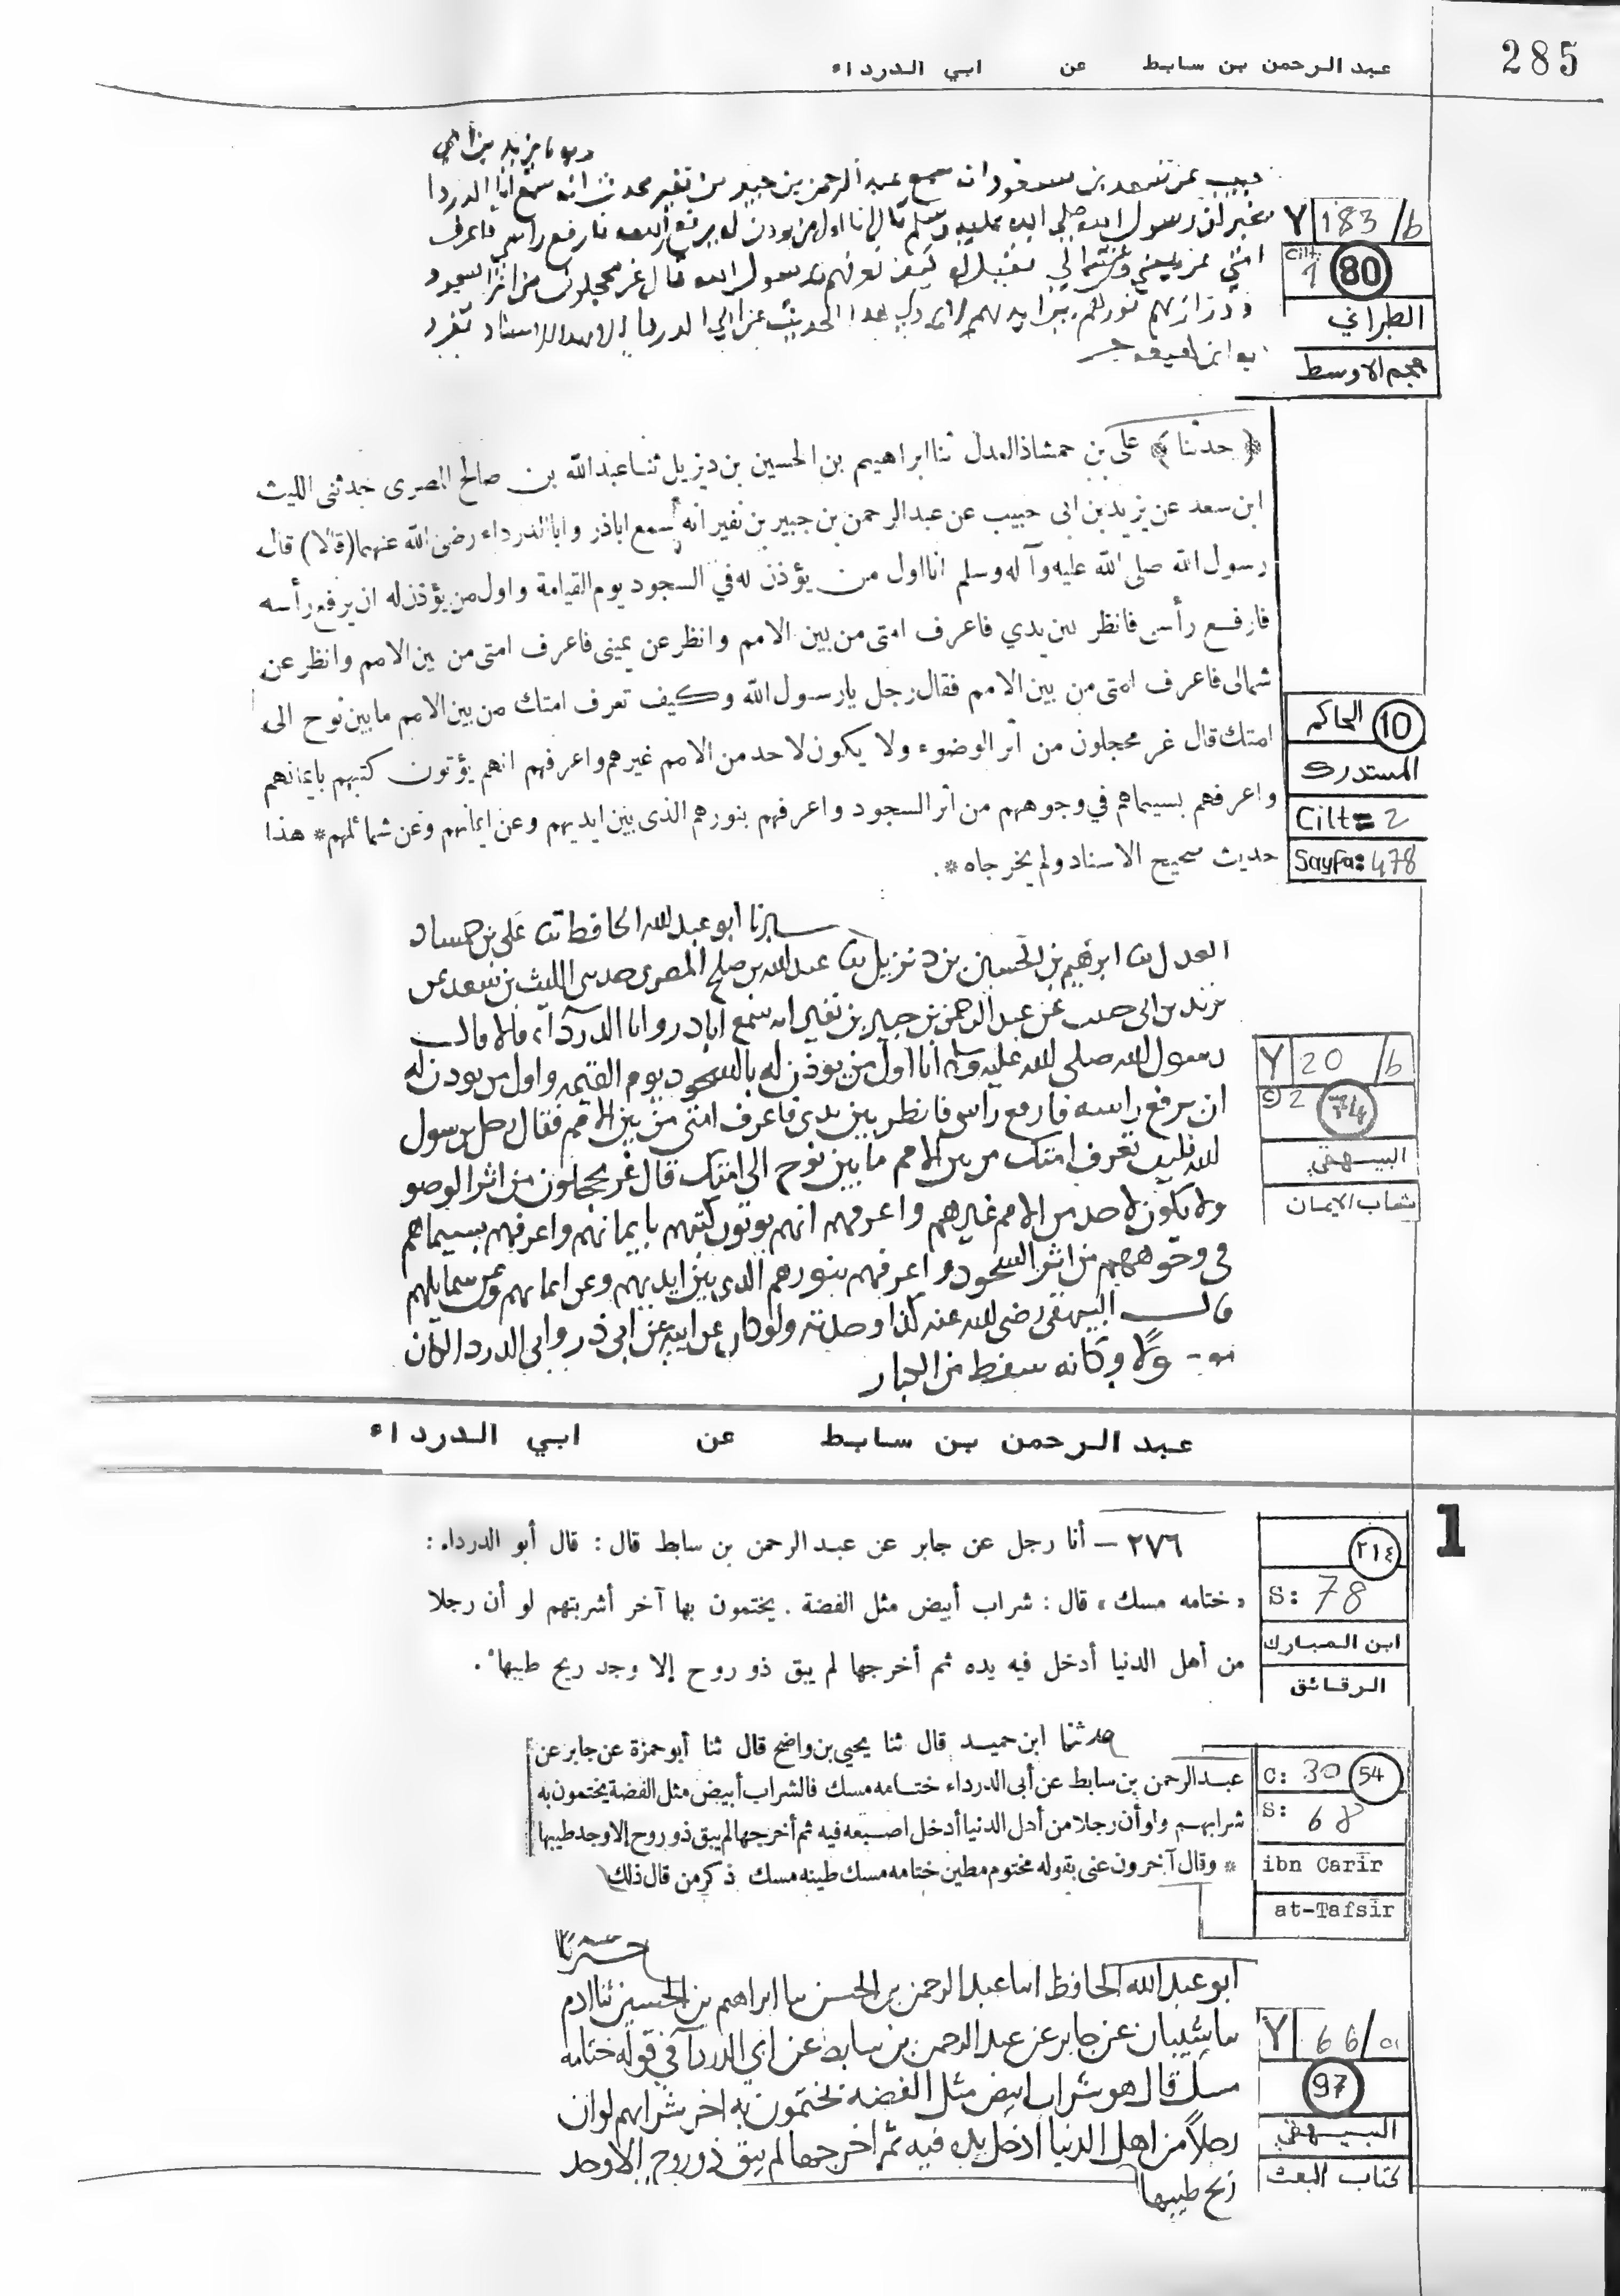 285
عبد الرحمن بن سابط عن ابي الدرداء
حبيب عن سعد بن مسعود انه سمع عبد الرحمن بن جبير بن نفير يحدث انه سمع ابا الدردا
يخبر ان رسول الله صلي الله عليه وسلم قال انا اول من يوذن له يرفع راسه فارفع راسي فاعرف
امتي عن يميني وعن شمالي فقيل له كيف تعرفهم يا رسول الله قال غر محجلون من اثر السجود
به ابن لهيعة
Y 183/b
Cilt: 1 80
الطبراني
معجم الاوسط
﴿ حدثنا ﴾ على بن حمشاذ العدل ثنا ابراهيم بن الحسين بن ديزيل ثنا عبد الله بن صالح المصرى حدثنى الليث
ابن سعد عن يزيد بن ابى حبيب عن عبد الرحمن بن جبير بن نفير انه سمع اباذر وابا الدرداء رضى الله عنهما (قالا) قال
رسول الله صلى الله عليه وآله وسلم انا اول من يؤذن له في السجود يوم القيامة واول من يؤذن له ان يرفع رأسه
فارفع رأسى فانظر بين يدي فاعرف امتى من بين الامم وانظر عن يمينى فاعرف امتى من بين الامم وانظر عن
شمالى فاعرف امتى من بين الامم فقال رجل يا رسول الله وكيف تعرف امتك من بين الامم ما بين نوح الى
امتك قال غر محجلون من اثر الوضوء ولا يكون لاحد من الامم غيرهم واعرفهم انهم يؤتون كتبهم بايمانهم
واعرفهم بسيماهم في وجوههم من اثر السجود واعرفهم بنورهم الذى بين ايديهم وعن ايمانهم وعن شمائلهم* هذا
حديث صحيح الاسناد ولم يخرجاه *.
10 الحاكم
المستدرك
Cilt= 2
Sayfa: 478
ابو عبد الله الحافظ ثنا على بن حمساد
العدل ثنا ابرهيم بن الحسين بن ديزيل ثنا عبد الله بن صلح المصرى حدثنى الليث بن سعد عن
يزيد بن ابى حبيب عن عبد الرحمن بن جبير بن نفير انه سمع ابا ذر وابا الدرداء قالا قال
رسول الله صلى الله عليه وسلم انا اول من يوذن له بالسجود يوم القيمه واول من يوذن له
ان يرفع راسه فارفع راسى فانظر بين يدى فاعرف امتى من بين الامم فقال رجل يرسول
الله فكيف تعرف امتك من بين الامم ما بين نوح الى امتك قال غر محجلون من اثر الوضو
ولا يكون لاحد من الامم غيرهم واعرفهم انهم يوتون كتبهم بايمانهم واعرفهم بسيماهم
فى وجوههم من اثر السجود واعرفهم بنورهم الذى بين ايديهم وعن ايمانهم وعن شمايلهم
قال البيهقى رضى الله عنه كذا وجدته ولو كان عن ابيه عن ابى ذر وابى الدردا لكان
وكانه سقط من الكتاب
Y 20 /b
C) 2 74
البيهقي
شعاب الايمان
عبد الرحمن بن سابط عن ابي الدرداء
1
٢٧٦ – أنا رجل عن جابر عن عبد الرحمن بن سابط قال : قال أبو الدرداء :
« ختامه مسك » قال : شراب أبيض مثل الفضة . يختمون بها آخر أشربتهم لو أن رجلا
من أهل الدنيا أدخل فيه يده ثم أخرجها لم يبق ذو روح إلا وجد ريح طيبها .
٢١٤
S: 78
ابن المبارك
الرقائق
حدثنا ابن حميد قال ثنا يحيى بن واضح قال ثنا أبو حمزة عن جابر عن
عبد الرحمن بن سابط عن أبى الدرداء ختامه مسك فالشراب أبيض مثل الفضة يختمون به
شرابهم ولو أن رجلا من أهل الدنيا أدخل اصبعه فيه ثم أخرجها لم يبق ذو روح إلا وجد طيبها
* وقال آخرون عنى بقوله مختوم مطين ختامه مسك طينه مسك ذكر من قال ذلك
C: 30 54
S: 68
ibn Carir
at-Tafsir
ابو عبد الله الحافظ انا عبد الرحمن بن الحسن نا ابراهيم بن الحسين ثنا ادم
نا شيبان عن جابر عن عبد الرحمن بن سابط عن ابي الدرداء في قوله ختامه
مسك قال هو شراب ابيض مثل الفضة يختمون به اخر شرابهم لو ان
رجلا من اهل الدنيا ادخل يده فيه ثم اخرجها لم يبق ذو روح الا وجد
ريح طيبها
Y 66/a
97
البيهقي
كتاب البعث